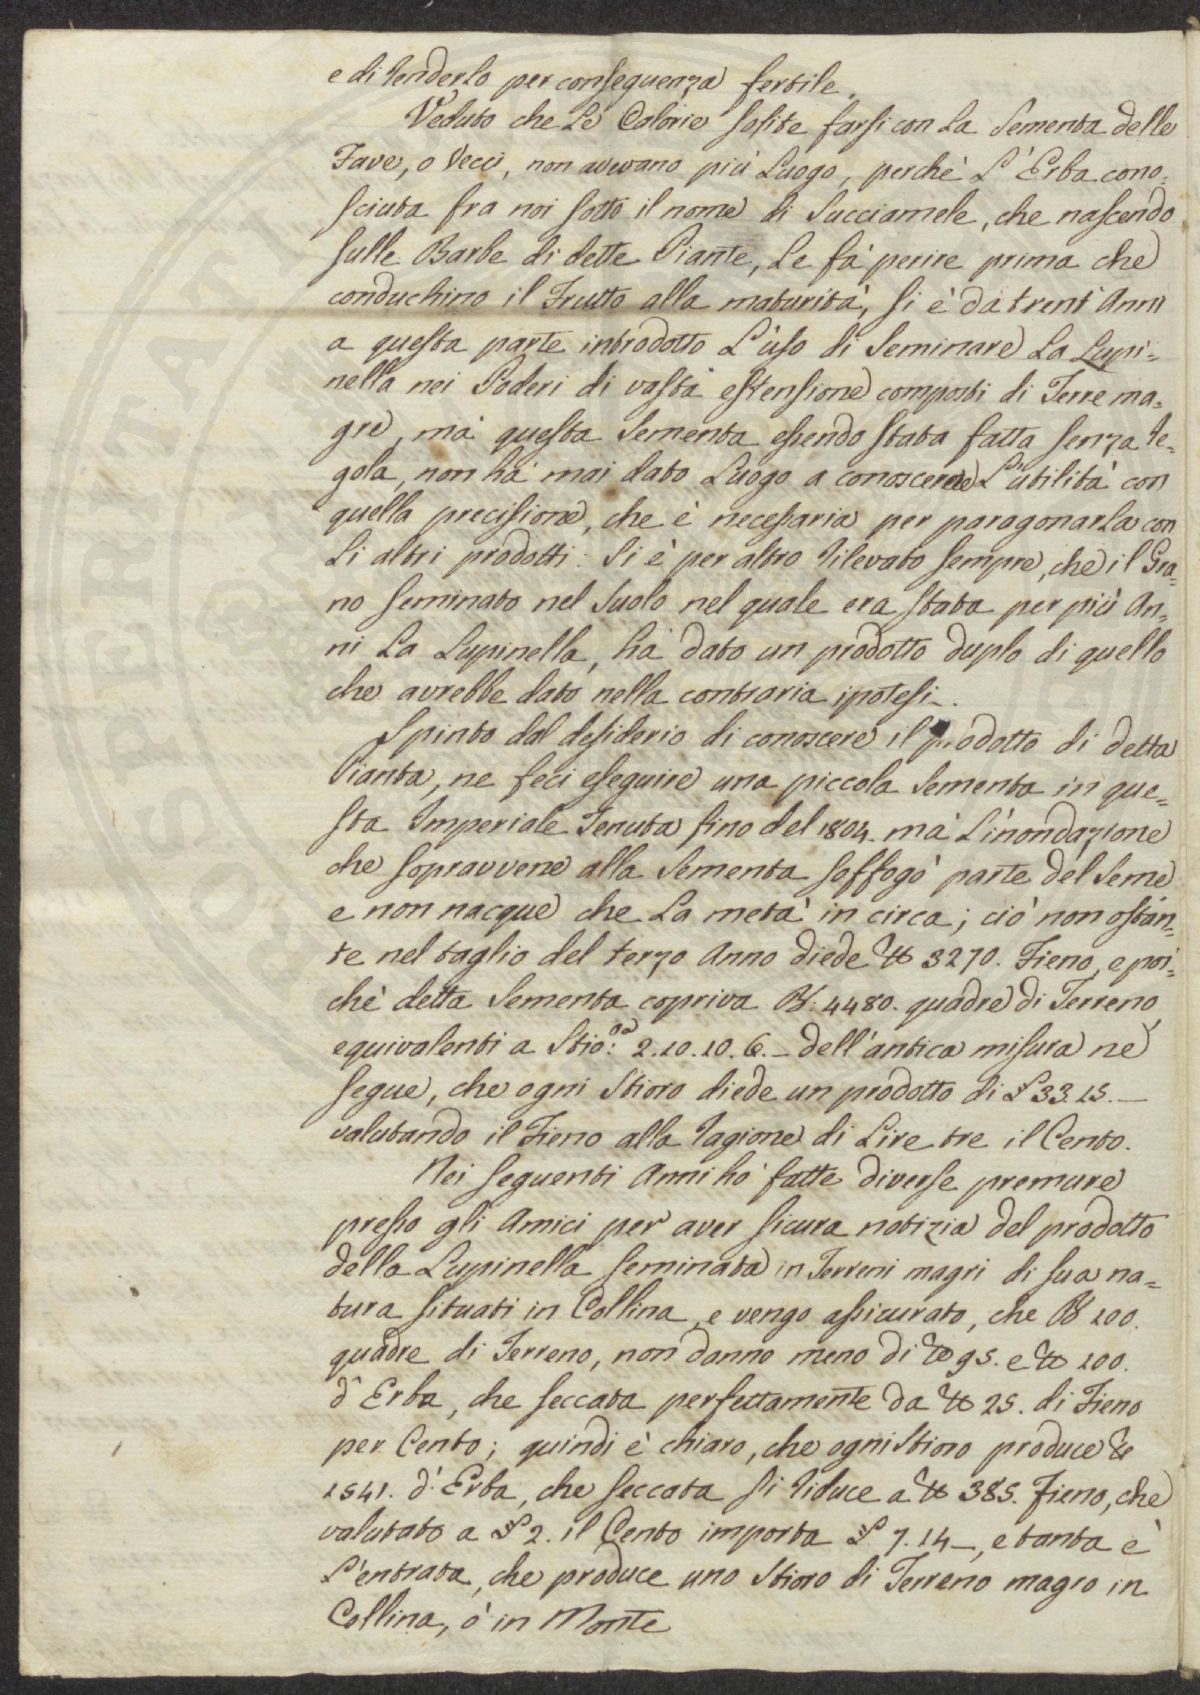 e di renderlo per conseguenza fertile.
Veduto che Le Calorie solite farsi con La Sementa delle
Fave, o Vecci, non avevano più Luogo, perchè L'Erba cono-
sciuta fra noi sotto il nome di Succiamele, che nascendo
sulle Barbe di dette Piante, Le fà perire prima che
conduchino il Frutto alla maturità, si è da trent'Anni
a questa parte introdotto L'uso di Seminare La Lupi=
nella nei Poderi di vasta estensione composti di Terre ma-
gre, mà questa Sementa essendo stata fatta senza re-
gola, non hà mai dato Luogo a conoscere L'utilità con
quella precisione, che è necessaria per paragonarla con
Li altri prodotti: Si è per altro rilevato sempre, che il Gra-
no seminato nel Suolo nel quale era stata per più An-
ni La Lupinella, hà dato un prodotto duplo di quello
che avrebbe dato nella contraria ipotesi.
Spinto dal desiderio di conoscere il prodotto di detta
Pianta, ne feci eseguire una piccola Sementa in que=
sta Imperiale Tenuta fino del 1804. mà L'inondazione
che sopravvene alla Sementa soffogò parte del Seme
e non nacque che La metà in circa; ciò non ostan-
te nel taglio del terzo Anno diede ℔ 3270. Fieno, e poi-
chè detta Sementa copriva B.: 4480. quadre di Terreno
equivalenti a Stio.ra 2.10.10.6.– dell'antica misura ne
segue, che ogni Stioro diede un prodotto di £ 33.15.—
valutando il Fieno alla ragione di Lire tre il Cento.
Nei seguenti Anni hò fatte diverse premure
presso gli Amici per aver sicura notizia del prodotto
della Lupinella seminata in Terreni magri di sua na=
tura situati in Collina, e vengo assicurato, che B 100.
quadre di Terreno, non danno meno di ℔ 95. e ℔ 100.
d'Erba, che seccata perfettamente da ℔ 25. di Fieno
per Cento; quindi è chiaro, che ogni Stioro produce ℔
1541. d'Erba, che seccata si riduce a ℔ 385. Fieno, che
valutato a £ 2. il Cento importa £ 7.14–, e tanta è
L'entrata, che produce uno Stioro di Terreno magro in
Collina, ò in Monte